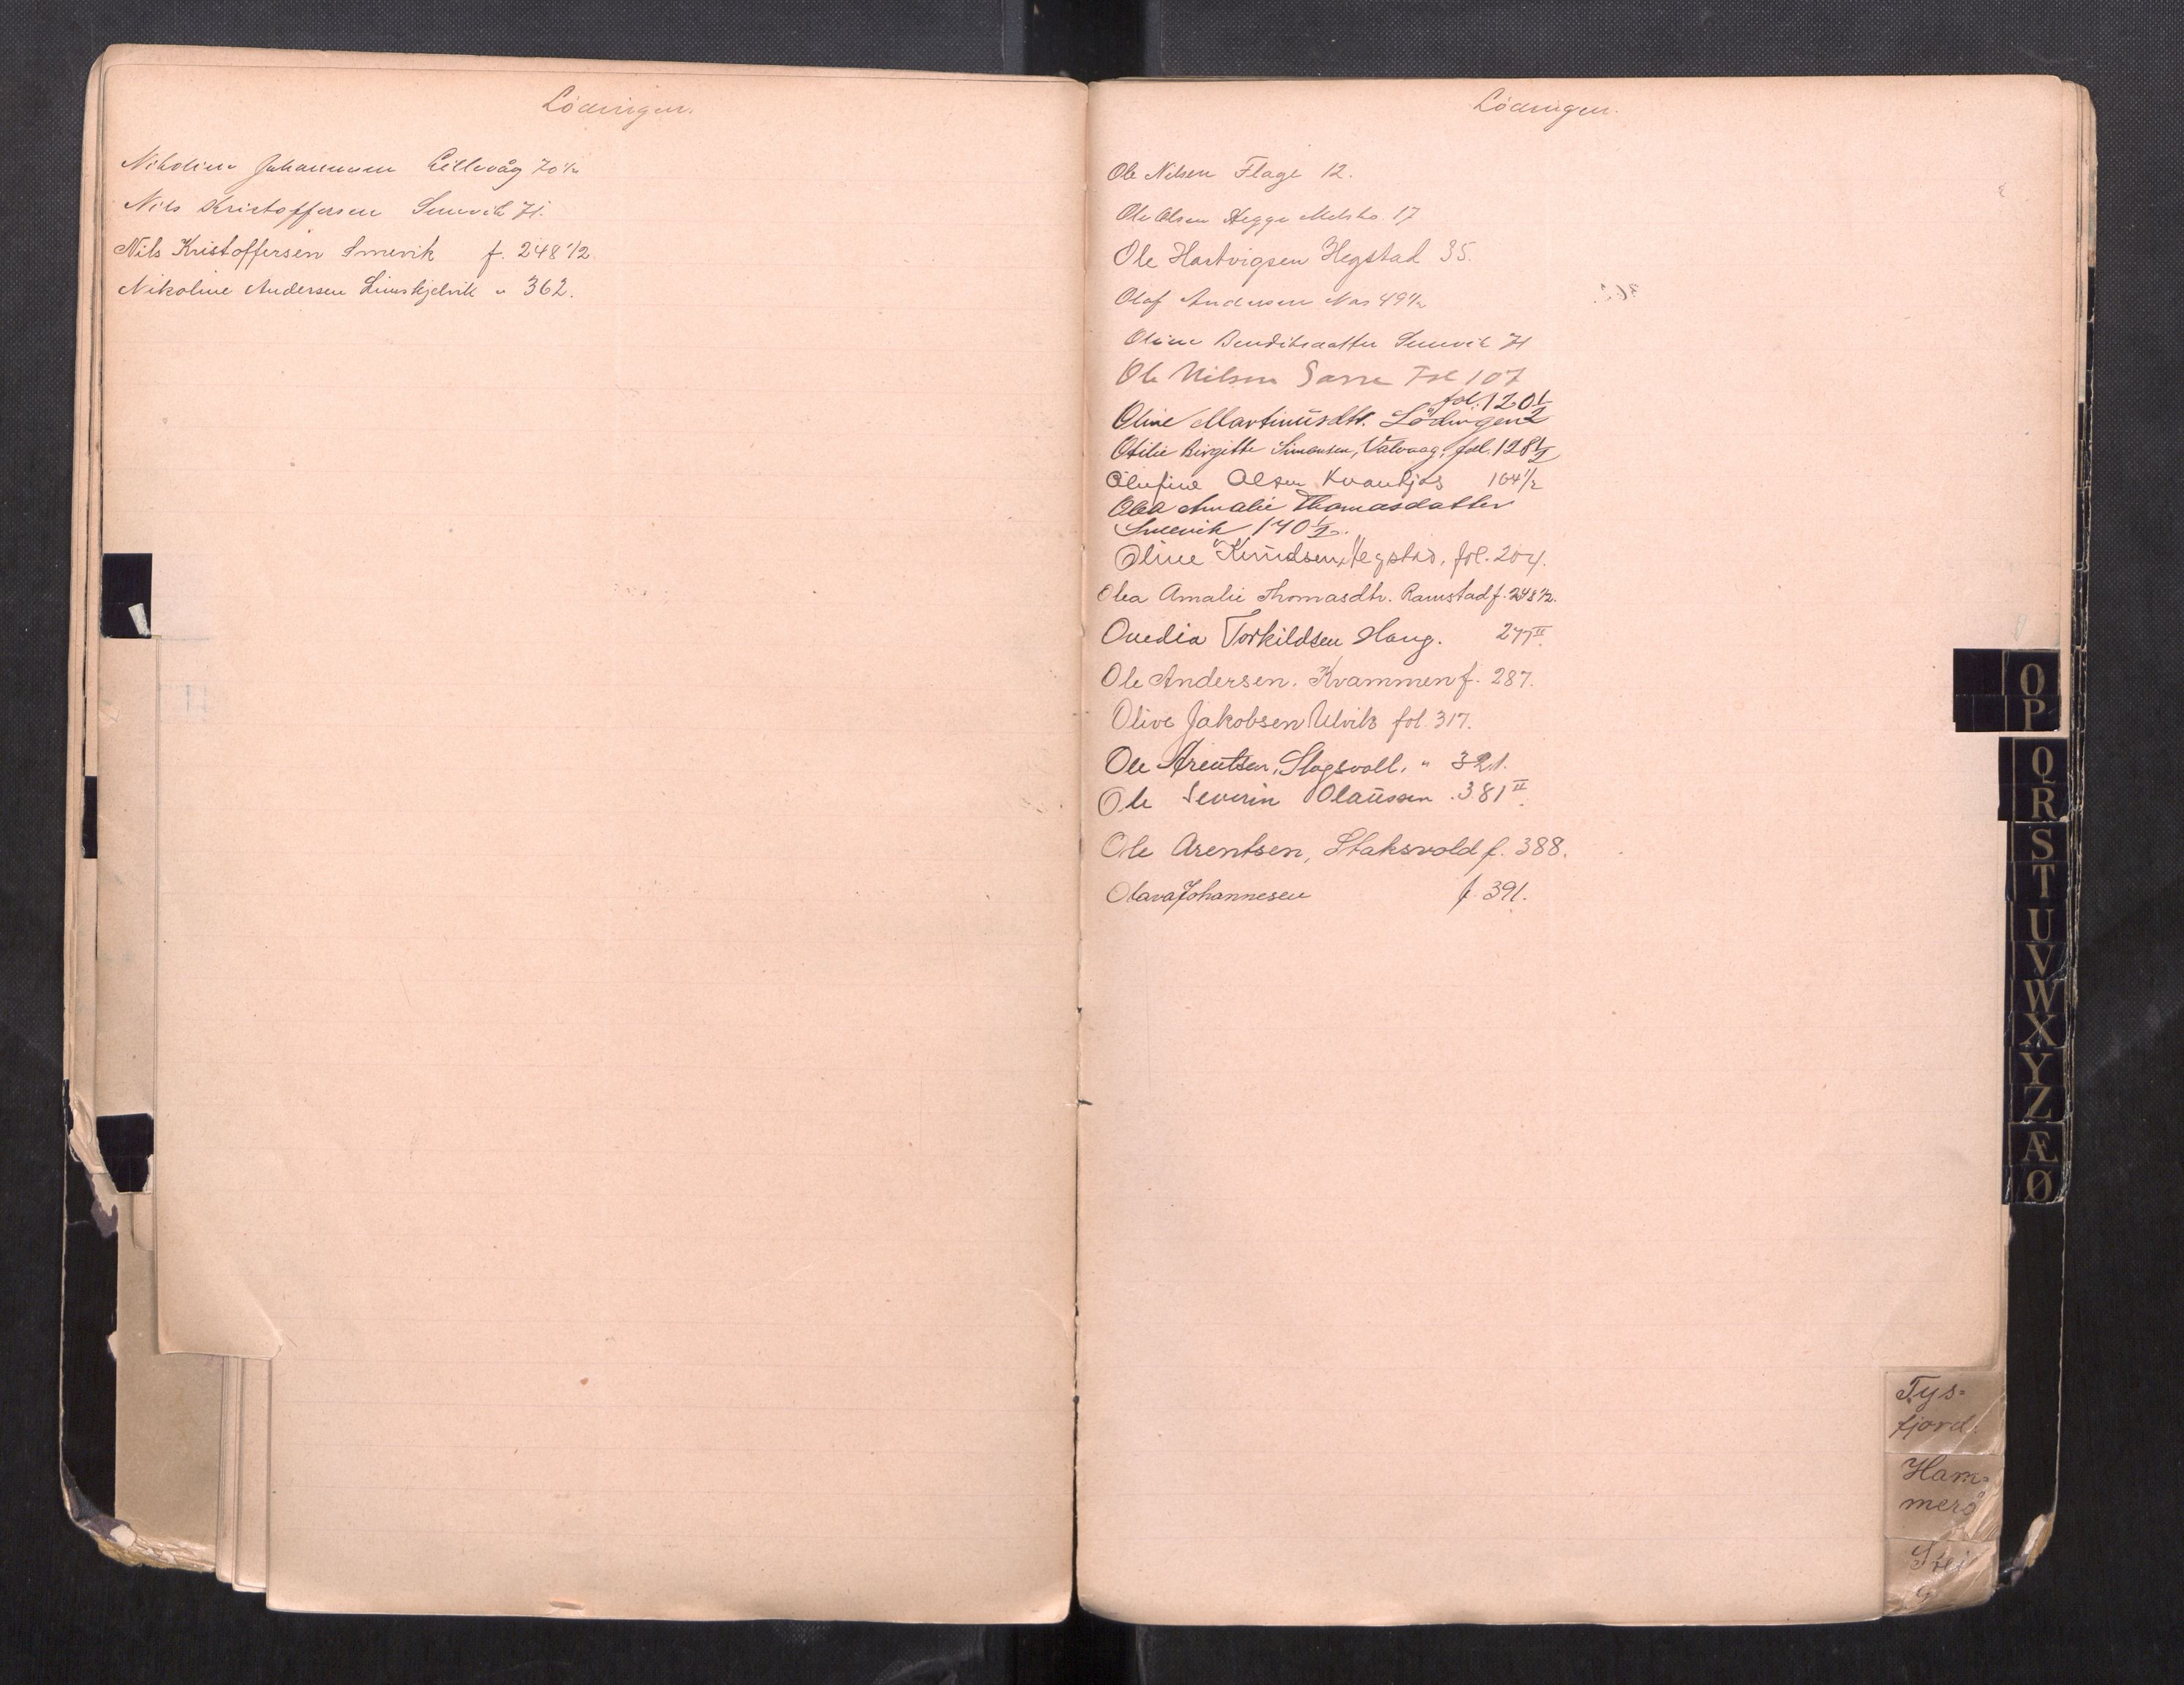 Lödingen.
Nikoline Johannesen Lillevåg 70 1/2
Nils Kristoffersen Smevik 71.
Nils Kristoffersen Smevik f. 248 1/2
Nikoline Andersen " 362.
Lödingen.
Ole Nilsen Flage 12.
Ole Olsen Hegge 17
Ole Hartvigsen Hegstad 35.
Olaf Andersen Nes 49 1/2
Oline Smevik 71
Ole Nilsen Fol 107
fol. 120 1/2
Oline Martinusdtr. Lödingen
Otilie Birgitte Simonsen, Valvaag, fol. 128 1/2
Olufine Olsen 164 1/2
Olea Amalie Thomasdatter
Smevik 170 1/2.
Oline Knudsen, Hegstad, fol. 204.
Olea Amalie Thomasdtr. Ramstad f. 248 1/2.
Ovedia Torkildsen Haug. 277 II.
Ole Andersen. Kvammen f. 287.
Olive Jakobsen Ulvik fol. 317.
Ole Arentsen, Stagsvoll, " 321.
Ole Severin Olaussen . 381 II.
Ole Arentsen, Staksvold f. 388.
Olava Johannesen f. 391.
O
P
Q
R
S
T
U
V
W
X
Y
Z
Æ
Ø
Tys=
fjord.
Ham=
merö